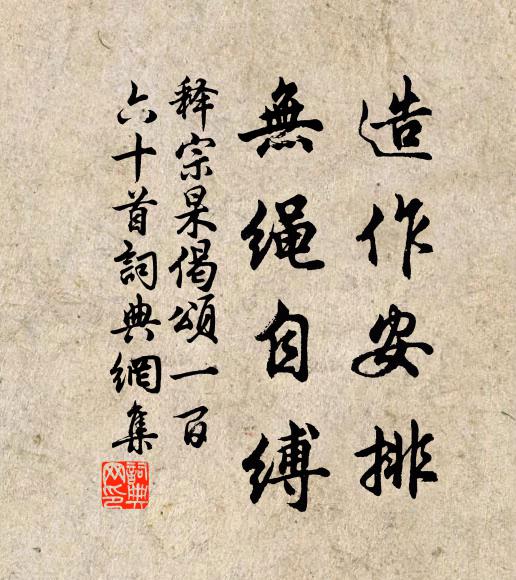 造作安排
無繩自縛
释宗杲偈頌一百
六十首詞典網集
詞典
网印